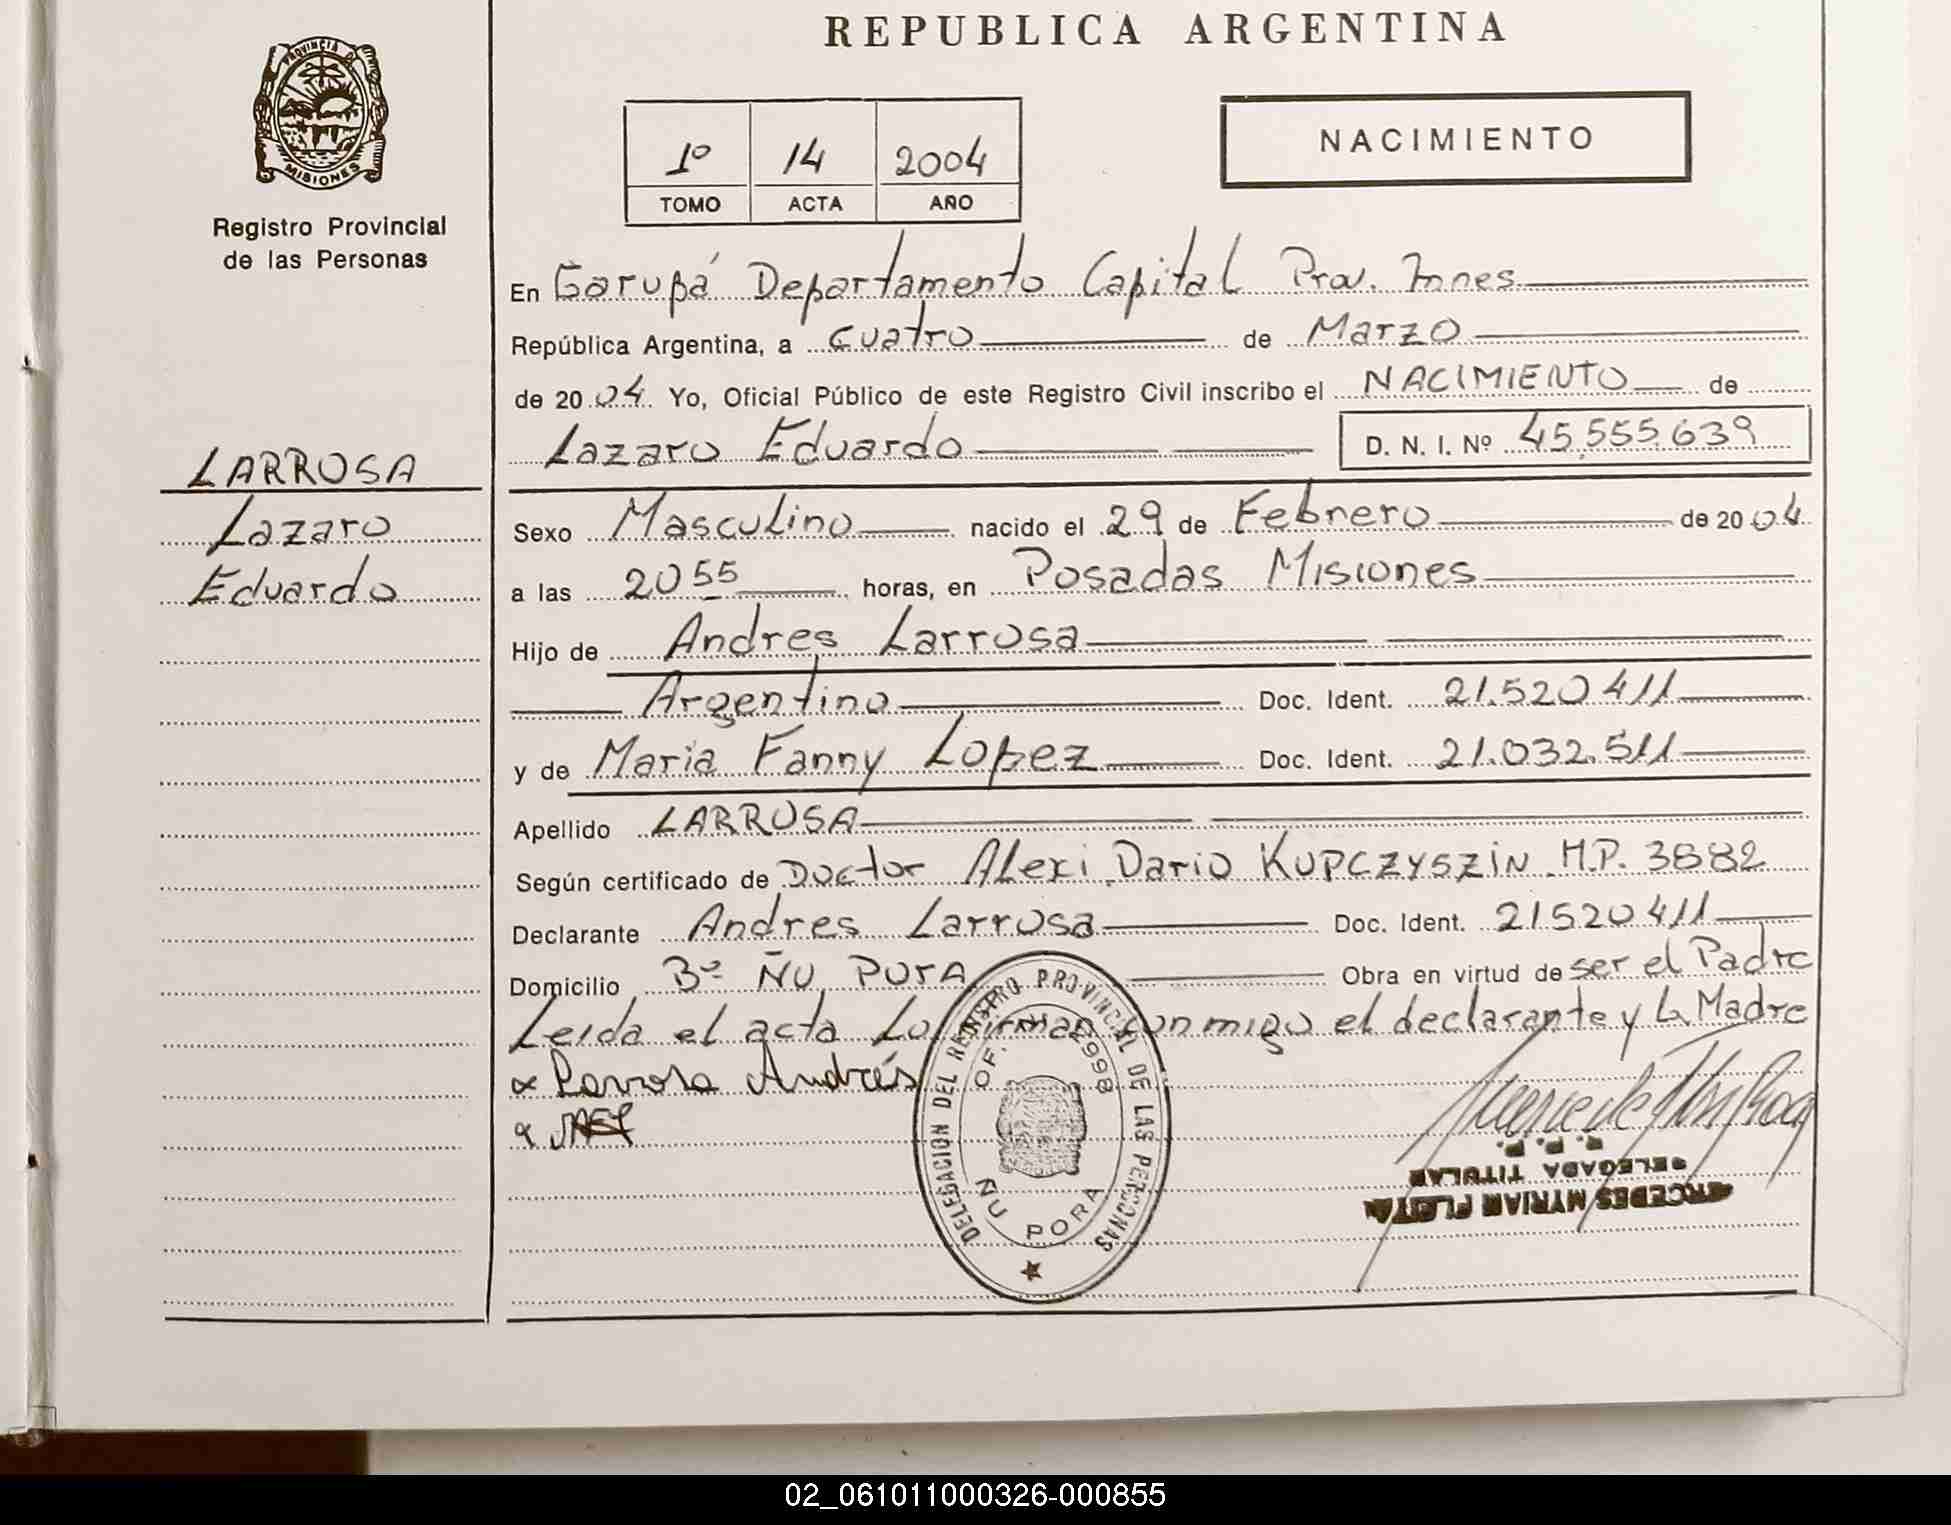 REPUBLICA ARGENTINA
PROVINCIA DE
MISIONES
Registro Provincial
de las Personas
1º 14 2004
TOMO ACTA AÑO
NACIMIENTO
En Garupá Departamento Capital Prov. Mnes
República Argentina, a Cuatro de Marzo
de 2004 Yo, Oficial Público de este Registro Civil inscribo el NACIMIENTO de
Lazaro Eduardo D. N. I. Nº 45.555.639
LARROSA
Lazaro
Eduardo
Sexo Masculino nacido el 29 de Febrero de 2004
a las 20 55 horas, en Posadas Misiones
Hijo de Andres Larrosa
Argentino Doc. Ident. 21.520411
y de Maria Fanny Lopez Doc. Ident. 21.032.511
Apellido LARROSA
Según certificado de Doctor Alexi Dario KUPCZYSZIN M.P. 3682
Declarante Andres Larrosa Doc. Ident. 21520411
Domicilio Bº ÑU PORA Obra en virtud de ser el Padre
Leida el acta La firman conmigo el declarante y la Madre
Larrosa Andrés
DELEGACION DEL REGISTRO PROVINCIAL DE LAS PERSONAS
OF. 2998
ÑU PORA
R. P. P.
DELEGADA TITULAR
MERCEDES MYRIAM
02_061011000326-000855